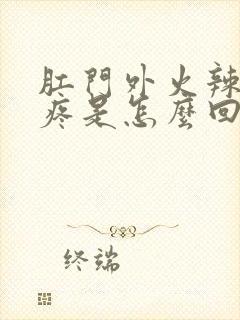 肛門外火辣
疼是怎麼回
终端